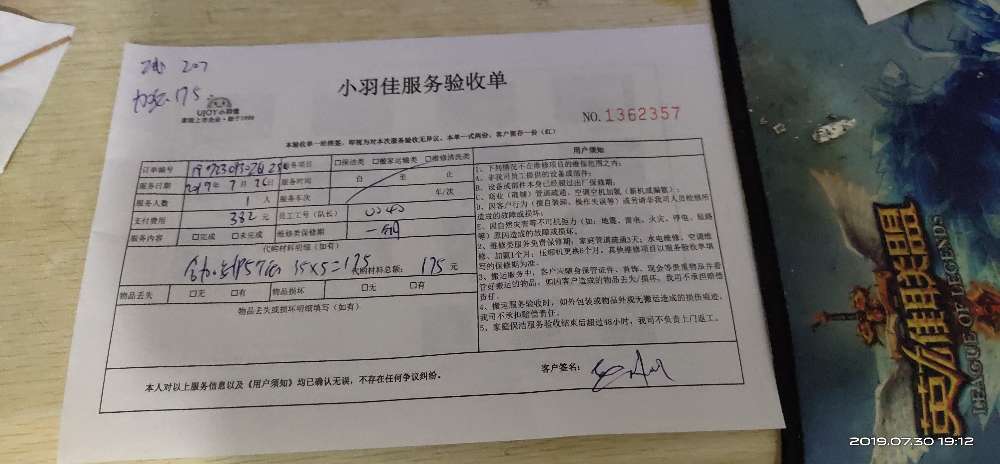 207
175
UJOY小羽佳
家政上市企业·始于1999
小羽佳服务验收单
NO.1362357
本验收单一经签署,即视为对本次服务验收无异议。本单一式两份,客户留存一份(红)
订单编号
服务项目 □保洁类 □搬家运输类 □维修清洗类
服务日期 2019年7月26日 服务时间 自 至 止
服务人数 1 人 服务车次 车/次
支付费用 332 元 员工工号(队长) 0040
服务内容 □完成 □未完成 维修类保修期 一个月
代购材料明细(如有)
35×5=175 代购材料总额: 175 元
物品丢失 □无 □有 物品损坏 □无 □有
物品丢失或损坏明细填写(如有)
用户须知
1、下列情况不在维修项目的维保范围之内:
A、非我司员工提供的设备或部件;
B、设备或部件本身已经超过出厂保修期;
C、商业(商铺)管道疏通、空调空机加氟(新机或漏氟);
D、因客户行为(擅自装卸、操作失误等)或另请非我司人员检修所
造成的故障或损坏;
E、因自然灾害等不可抗力(如:地震、雷电、火灾、停电、短路
等)原因造成的故障或损坏。
2、维修类服务免费保修期:家庭管道疏通3天;水电维修、空调维
修、加氟1个月;压缩机更换6个月。其他维修项目以服务验收单填
写的保修期为准。
3、搬运服务中,客户应随身保管证件、首饰、现金等贵重物品并看
管好搬运的物品,如因客户造成的物品丢失/损坏,我司不承担赔偿
责任。
4、搬运服务验收时,如外包装或物品外观无搬运造成的损伤痕迹,
我司不承担赔偿责任。
5、家庭保洁服务验收结束后超过48小时,我司不负责上门返工。
本人对以上服务信息以及《用户须知》均已确认无误,不存在任何争议纠纷。
客户签名:
英雄联盟
LEAGUE OF LEGENDS
2019.07.30 19:12